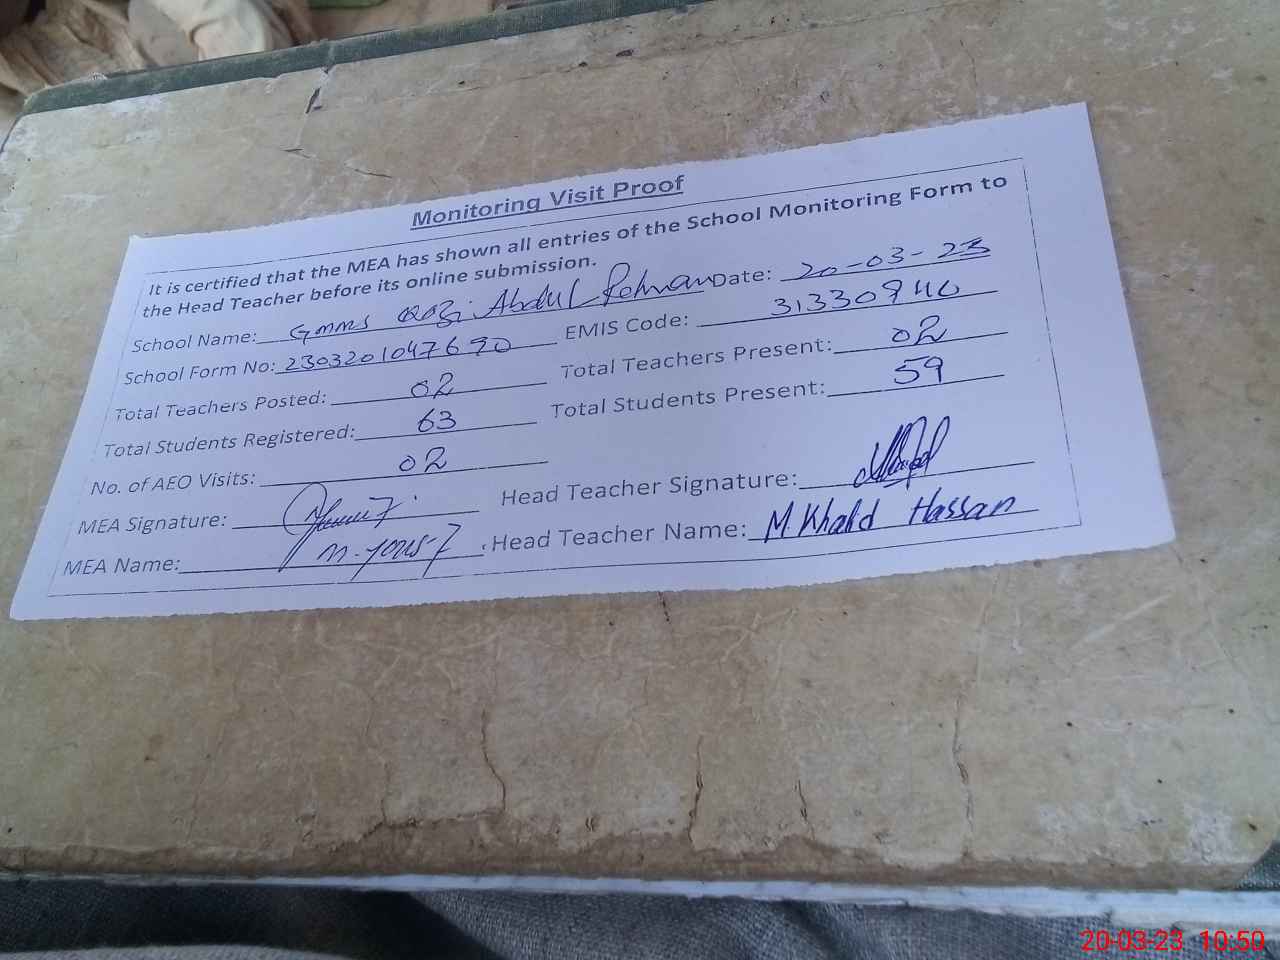 Monitoring Visit Proof
It is certified that the MEA has shown all entries of the School Monitoring Form to
the Head Teacher before its online submission.
School Name: Gmms Qazi Abdul Rehman Date: 20-03-23
School Form No: 2303201047690 EMIS Code: 31330940
Total Teachers Posted: 02 Total Teachers Present: 02
Total Students Registered: 63 Total Students Present: 59
No. of AEO Visits: 02
MEA Signature: Head Teacher Signature:
MEA Name: M. Yousaf Head Teacher Name: M. Khalid Hassan
20-03-23 10:50